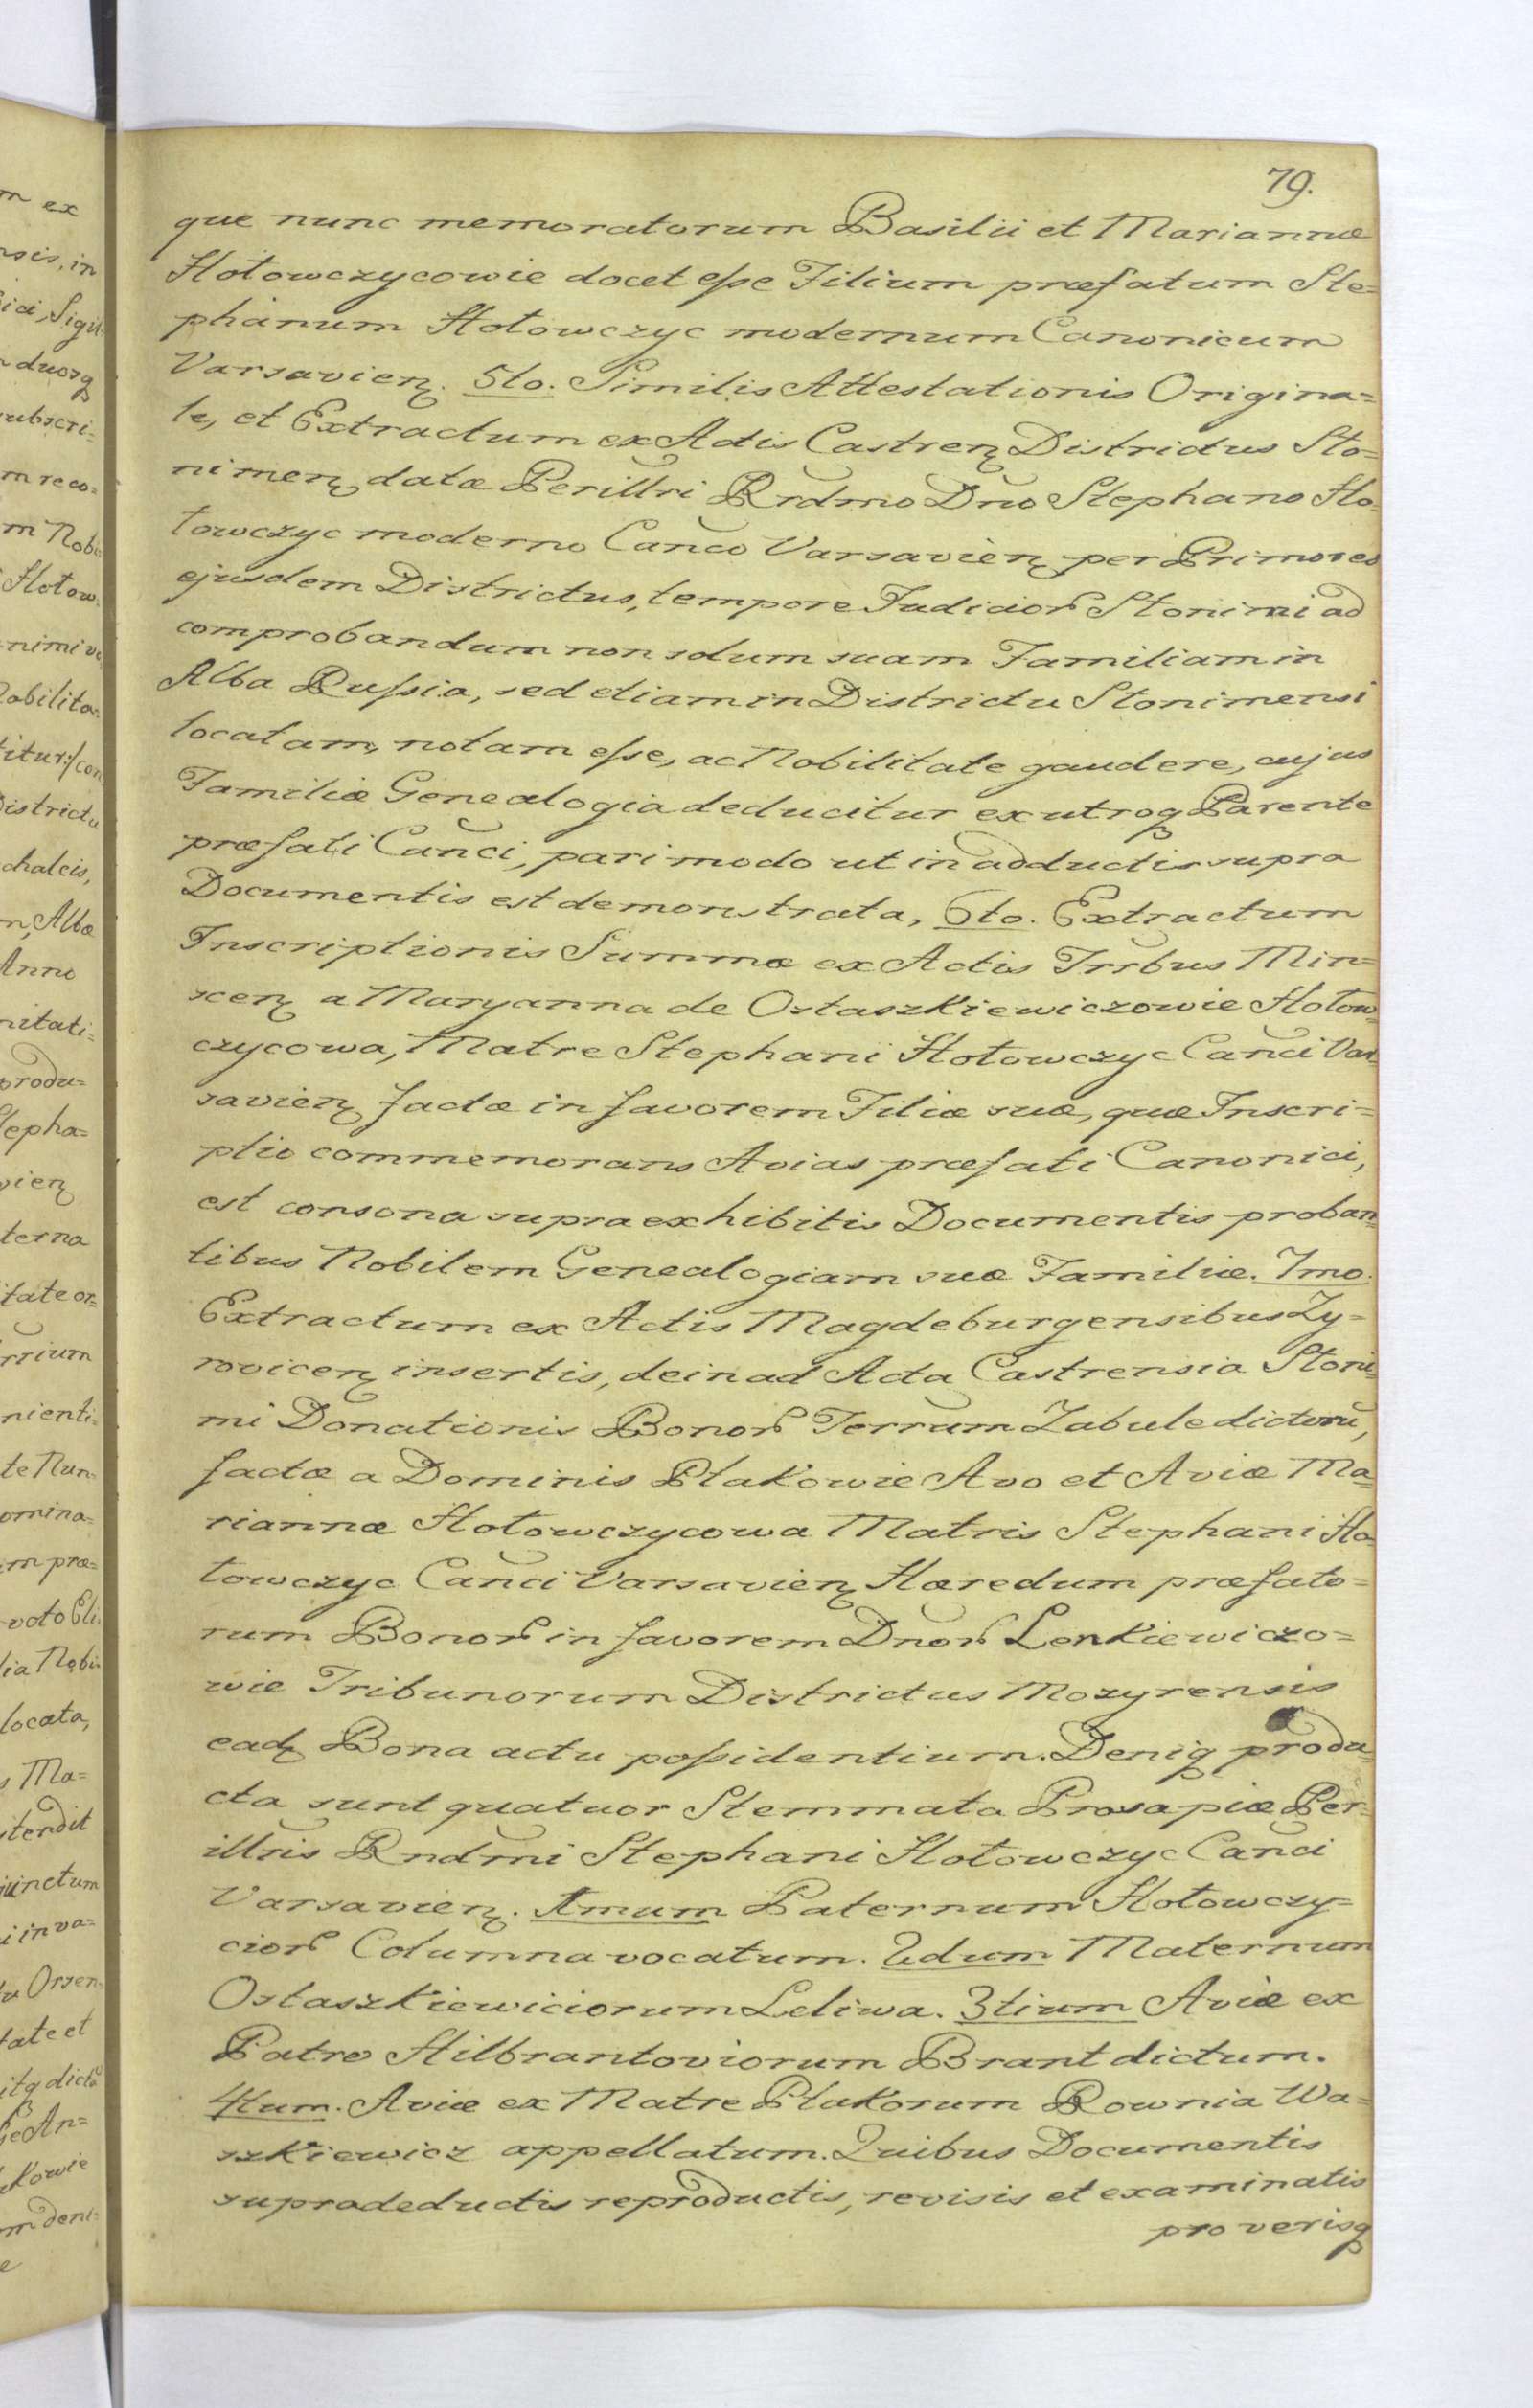 79.
que nunc memoratorum Basilii et Mariannæ
Hołowczycowie docet esse Filium præfatum Ste=
phanum Hołowczyc modernum Canonicum
Varsavien. 5to. Similis Attestationis Origina=
le, et Extractum ex Actis Castren Districtus Sło=
nimen, datæ Perillri Rndmo Dno Stephano Ho=
łowczyc moderno Canco Varsavien per Primores
ejusdem Districtus, tempore Judicior Słonimi ad
comprobandum non solum suam Familiam in
Alba Russia, sed etiam in Districtu Słonimensi
locatam, notam esse, ac Nobilitate gaudere, cujus
Familiæ Genealogia deducitur ex utroq Parente
præfati Canci, pari modo ut in adductis supra
Documentis est demonstrata, 6to. Extractum
Inscriptionis Summæ ex Actis Trrbus Min=
scen a Maryanna de Ostaszkiewiczowie Hołow=
czycowa, Matre Stephani Hołowczyc Canci Var=
savien factæ in favorem Filiæ suæ, quæ Inscri=
ptio commemorans Avias præfati Canonici,
est consona supra exhibitis Documentis proban=
tibus Nobilem Genealogiam suæ Familiæ. 7mo.
Extractum ex Actis Magdeburgensibus Zy=
rovicen insertis, dein ad Acta Castrensia Słoni=
mi Donationis Bonor Terrum Zabule dictorū,
factæ a Dominis Płakowie Avo et Aviæ Ma=
riannæ Hołowczycowa Matris Stephani Ho=
łowczyc Canci Varsavien Hæredum præfato=
rum Bonor in favorem Dnor Lenkiewiczo=
wie Tribunorum Districtus Mozyrensis
ead Bona actu possidentium. Deniq produ=
cta sunt quatuor Stemmata Prosapiæ Per=
illris Rndmi Stephani Hołowczyc Canci
Varsavien. 1mum Paternum Hołowczy=
cior Columna vocatum. 2dum Maternum
Ostaszkiewiciorum Leliwa. 3tium Aviæ ex
Patre Hilbrantoviorum Brant dictum.
4tum. Aviæ ex Matre Płakorum Rownia Wa=
szkiewicz appellatum. Quibus Documentis
supradeductis reproductis, revisis et examinatis
pro verisq